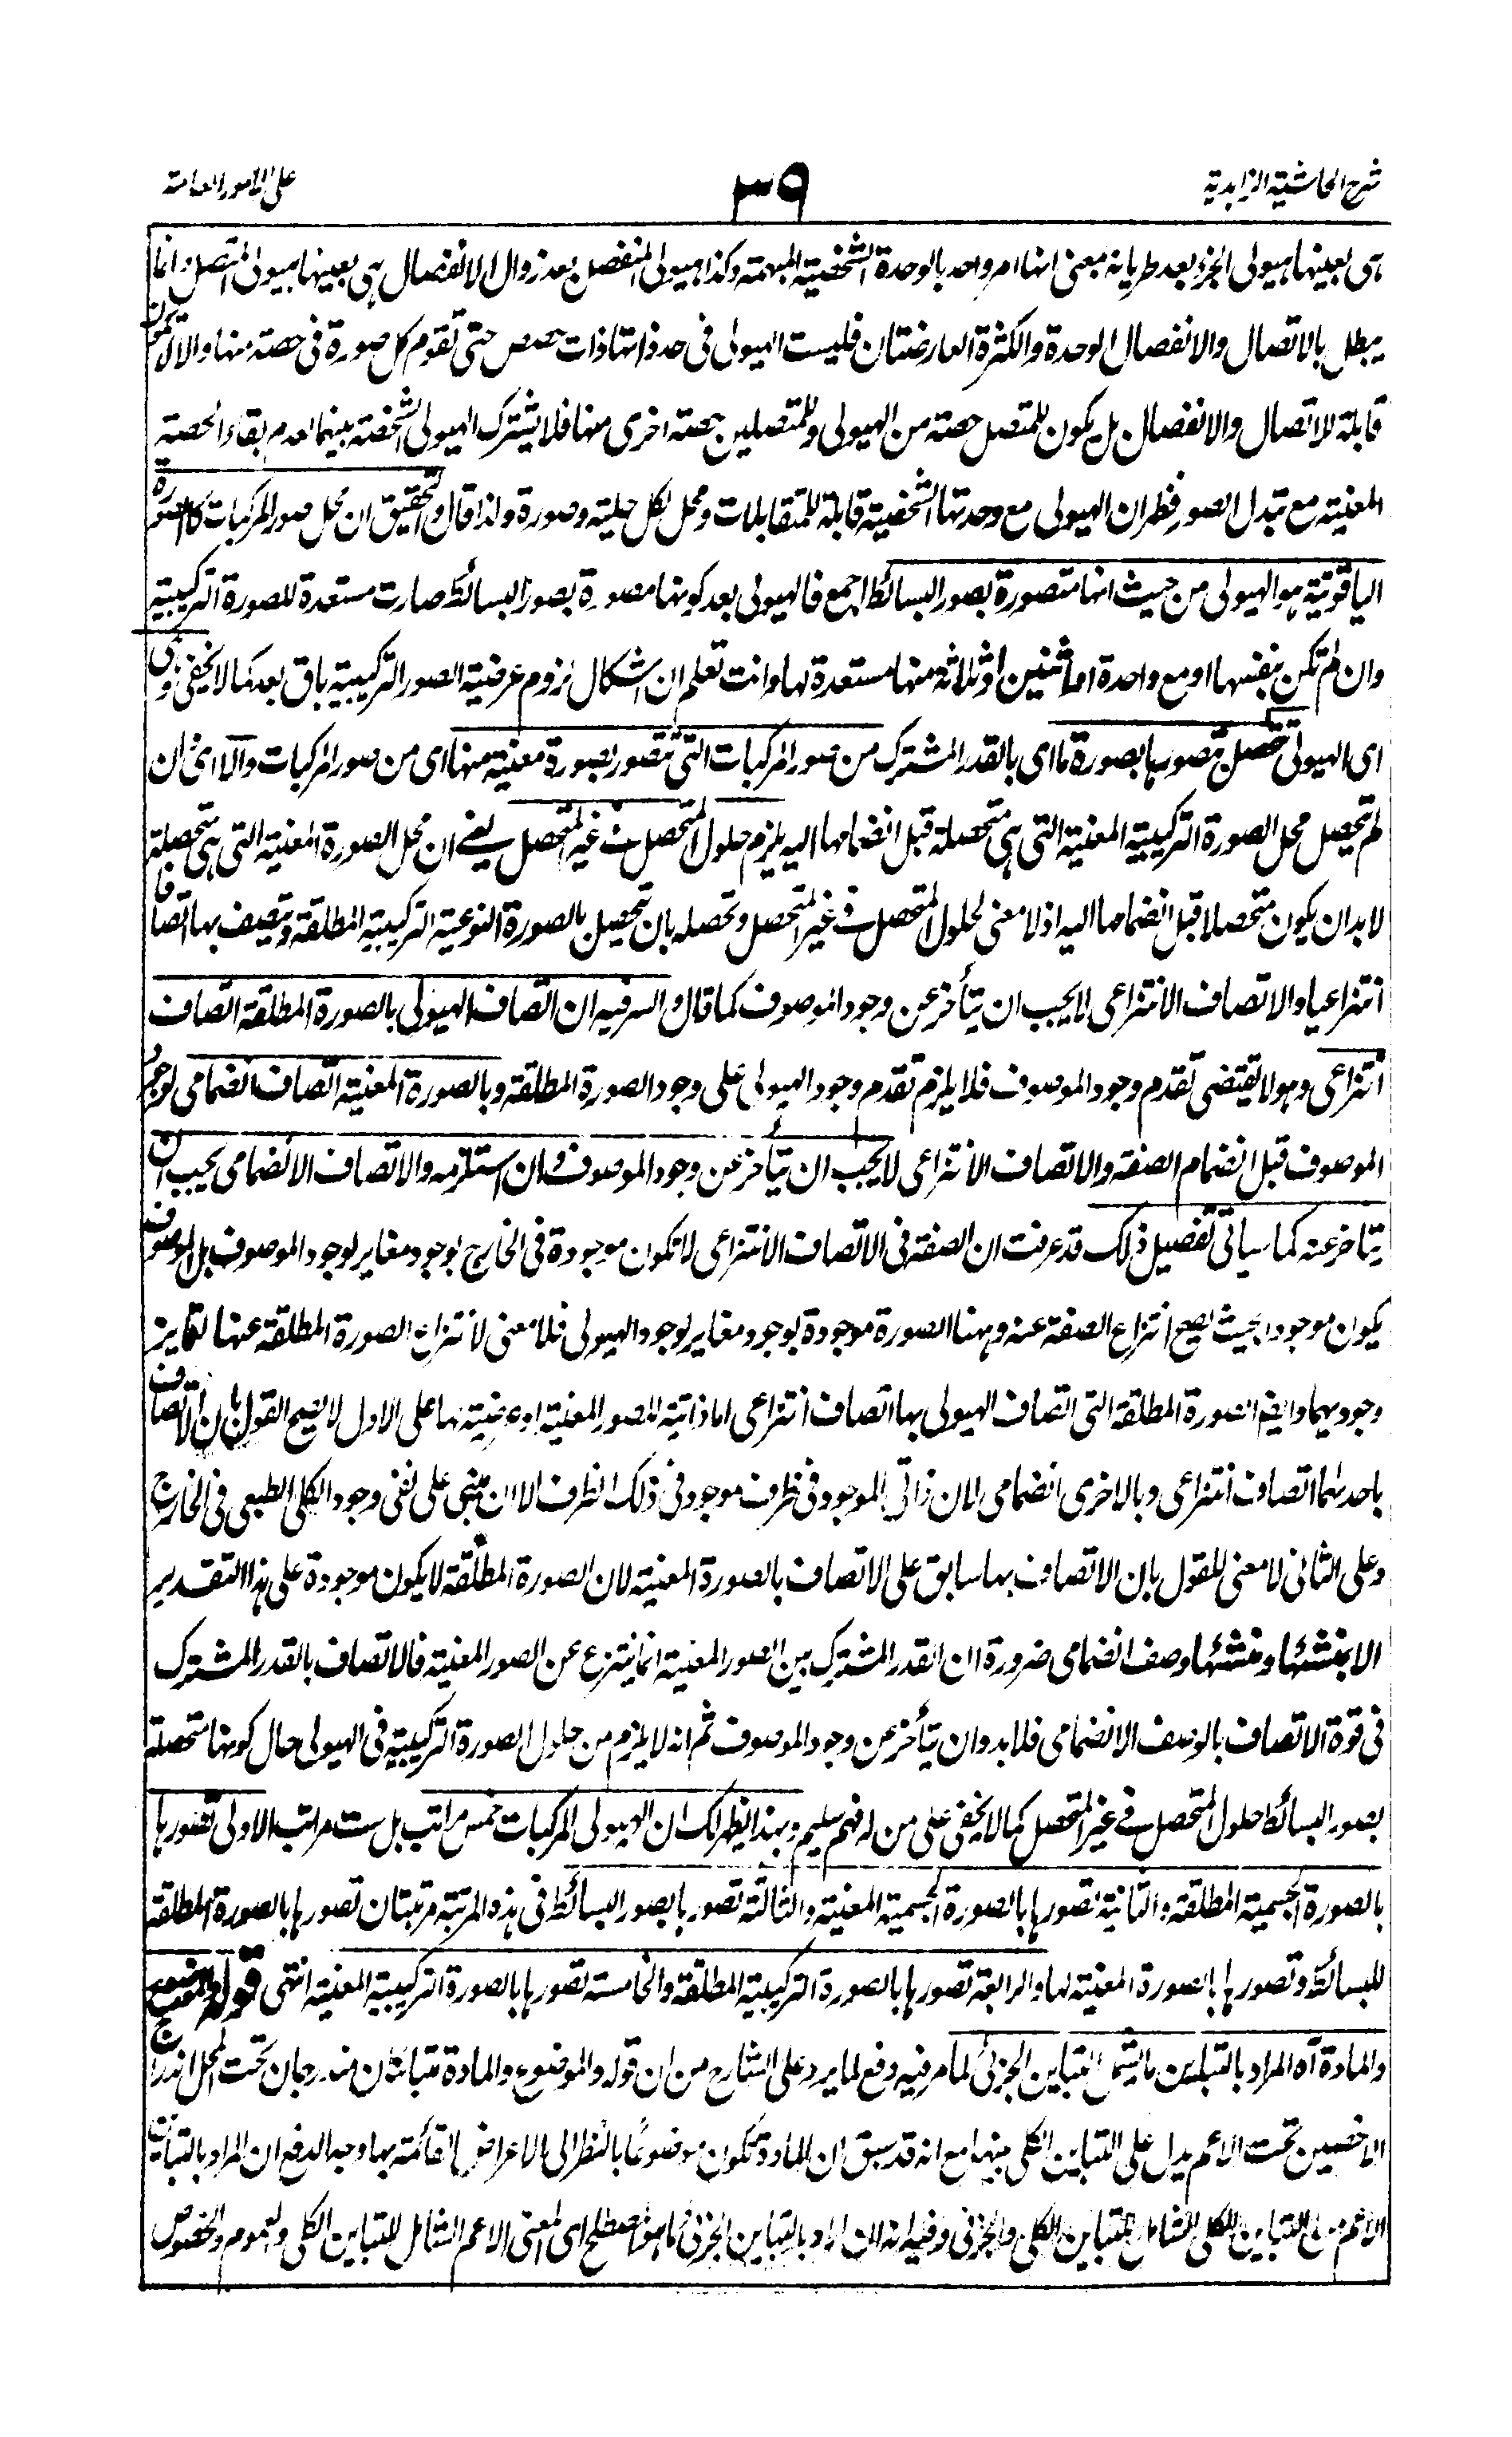 شرح الحاشية الزاهدية
٣٩
على الامور العامة
هى بعينها هيولى الجزء بعد طريانه بمعنى انها امر واحد بالوحدة الشخصية المبهمة وكذا هيولى المنفصل بعد زوال الانفصال هى بعينها هيولى المتصل وانما
يبطل بالاتصال والانفصال الوحدة والكثرة العارضتان فليست الهيولى فى حد ذاتها ذات حصص حتى تقوم كل صورة فى حصته منها والا لا تكون
قابلة للاتصال والانفصال بل يكون للمتصل حصته من الهيولى وللمتصلين حصته اخرى منها فلا يشترك الهيولى الشخصية بينهما لعدم بقاء الحصته
المعنية مع تبدل الصور فظهر ان الهيولى مع وحدتها الشخصية قابلة للمتقابلات ومحل لكل حلية وصورة ولذا قال والتحقيق ان محل صور المركبات كالصورة
الياقوتية هو الهيولى من حيث انها متصورة بصور البسائط اجمع فالهيولى بعد كونها مصورة بصور البسائط صارت مستعدة للصورة التركيبية
وان لم تكن بنفسها او مع واحدة او اثنين او ثلاثة منها مستعدة لها وانت تعلم ان اشكال لزوم عرضية الصور التركيبية باق بعد كما لا يخفى وهى
اى الهيولى تحصل بتصورها بصورة ما اى بالقدر المشترك من صور المركبات التى تتصور بصورة معنية منها اى من صور المركبات والا اى ان
لم تحصل محل الصورة التركيبية المعنية التى هى متحصلة قبل انضمامها اليه يلزم حلول المتحصل فى غير المتحصل يعنى ان محل الصورة المعنية التى هى متحصلة
لابد ان يكون متحصلا قبل انضمامها اليه اذ لا معنى لحلول المتحصل فى غير المتحصل وتحصله بان تتحصل بالصورة النوعية التركيبية المطلقة ويتصف بها اتصافا
انتزاعيا والاتصاف الانتزاعى لا يجب ان يتأخر عن وجود الموصوف كما قال والسر فيه ان اتصاف الهيولى بالصورة المطلقة اتصاف
انتزاعى وهو لا يقتضى تقدم وجود الموصوف فلا يلزم تقدم وجود الهيولى على وجود الصورة المطلقة وبالصورة المعنية اتصاف انضمامى لوجود
الموصوف قبل انضمام الصفة والاتصاف الانتزاعى لا يجب ان يتأخر عن وجود الموصوف وان استلزمه والاتصاف الانضمامى يجب ان
يتاخر عنه كما سياتى تفصيل ذلك قد عرفت ان الصفة فى الاتصاف الانتزاعى لا تكون موجودة فى الخارج بوجود مغاير لوجود الموصوف بل الموصوف
يكون موجودا بحيث يصح انتزاع الصفة عنه وههنا الصورة موجودة بوجود مغاير لوجود الهيولى فلا معنى لانتزاع الصورة المطلقة عنها لتمايز
وجوديهما وايضا الصورة المطلقة التى اتصاف الهيولى بها اتصاف انتزاعى اما ذاتية للصور المعنية او عرضية لها على الاول لا يصح القول بان الاتصاف
باحدهما اتصاف انتزاعى وبالاخرى انضمامى لان ذاتى الموجود فى ظرف موجود فى ذلك الظرف الا ان يبنى على نفى وجود الكلى الطبعى فى الخارج
وعلى الثانى لا معنى للقول بان الاتصاف بها سابق على الاتصاف بالصورة المعنية لان الصورة المطلقة لا يكون موجودة على هذا التقدير
الا بمنشئها ومنشئها وصف انضمامى ضرورة ان القدر المشترك بين الصور المعنية انما ينتزع عن الصور المعنية فالاتصاف بالقدر المشترك
فى قوة الاتصاف بالوصف الانضمامى فلابد وان يتأخر عن وجود الموصوف ثم انه لا يلزم من حلول الصورة التركيبية فى الهيولى حال كونها متحصلة
بصور البسائط حلول المتحصل فى غير المتحصل كما لا يخفى على من له فهم سليم وبهذا يظهر لك ان لهيولى المركبات خمس مراتب بل ست مراتب الاولى تصورها
بالصورة الجسمية المطلقة والثانية تصورها بالصورة الجسمية المعنية والثالثة تصورها بصور البسائط فى هذه المرتبة مرتبتان تصورها بالصورة المطلقة
للبسائط وتصورها بالصورة المعنية لها والرابعة تصورها بالصورة التركيبية المطلقة والخامسة تصورها بالصورة التركيبية المعنية انتهى قوله والموضوع
والمادة آه المراد بالتباين ما يشمل التباين الجزئى لما مر فيه دفع لما يرد على الشارح من ان قوله والموضوع والمادة متباينان مندرجان تحت المحل اندراج
الاخصين تحت الاعم يدل على التباين الكلى بينهما مع انه قد سبق ان المادة تكون موضوعا بالنظر الى الاعراض القائمة بها وجه الدفع ان المراد بالتباين
الاعم من التباين الكلى الشامل للتباين الكلى والجزئى وفيه انه ان اراد بالتباين الجزئى ما هو المصطلح اى المعنى الاعم الشامل للتباين الكلى والعموم والخصوص